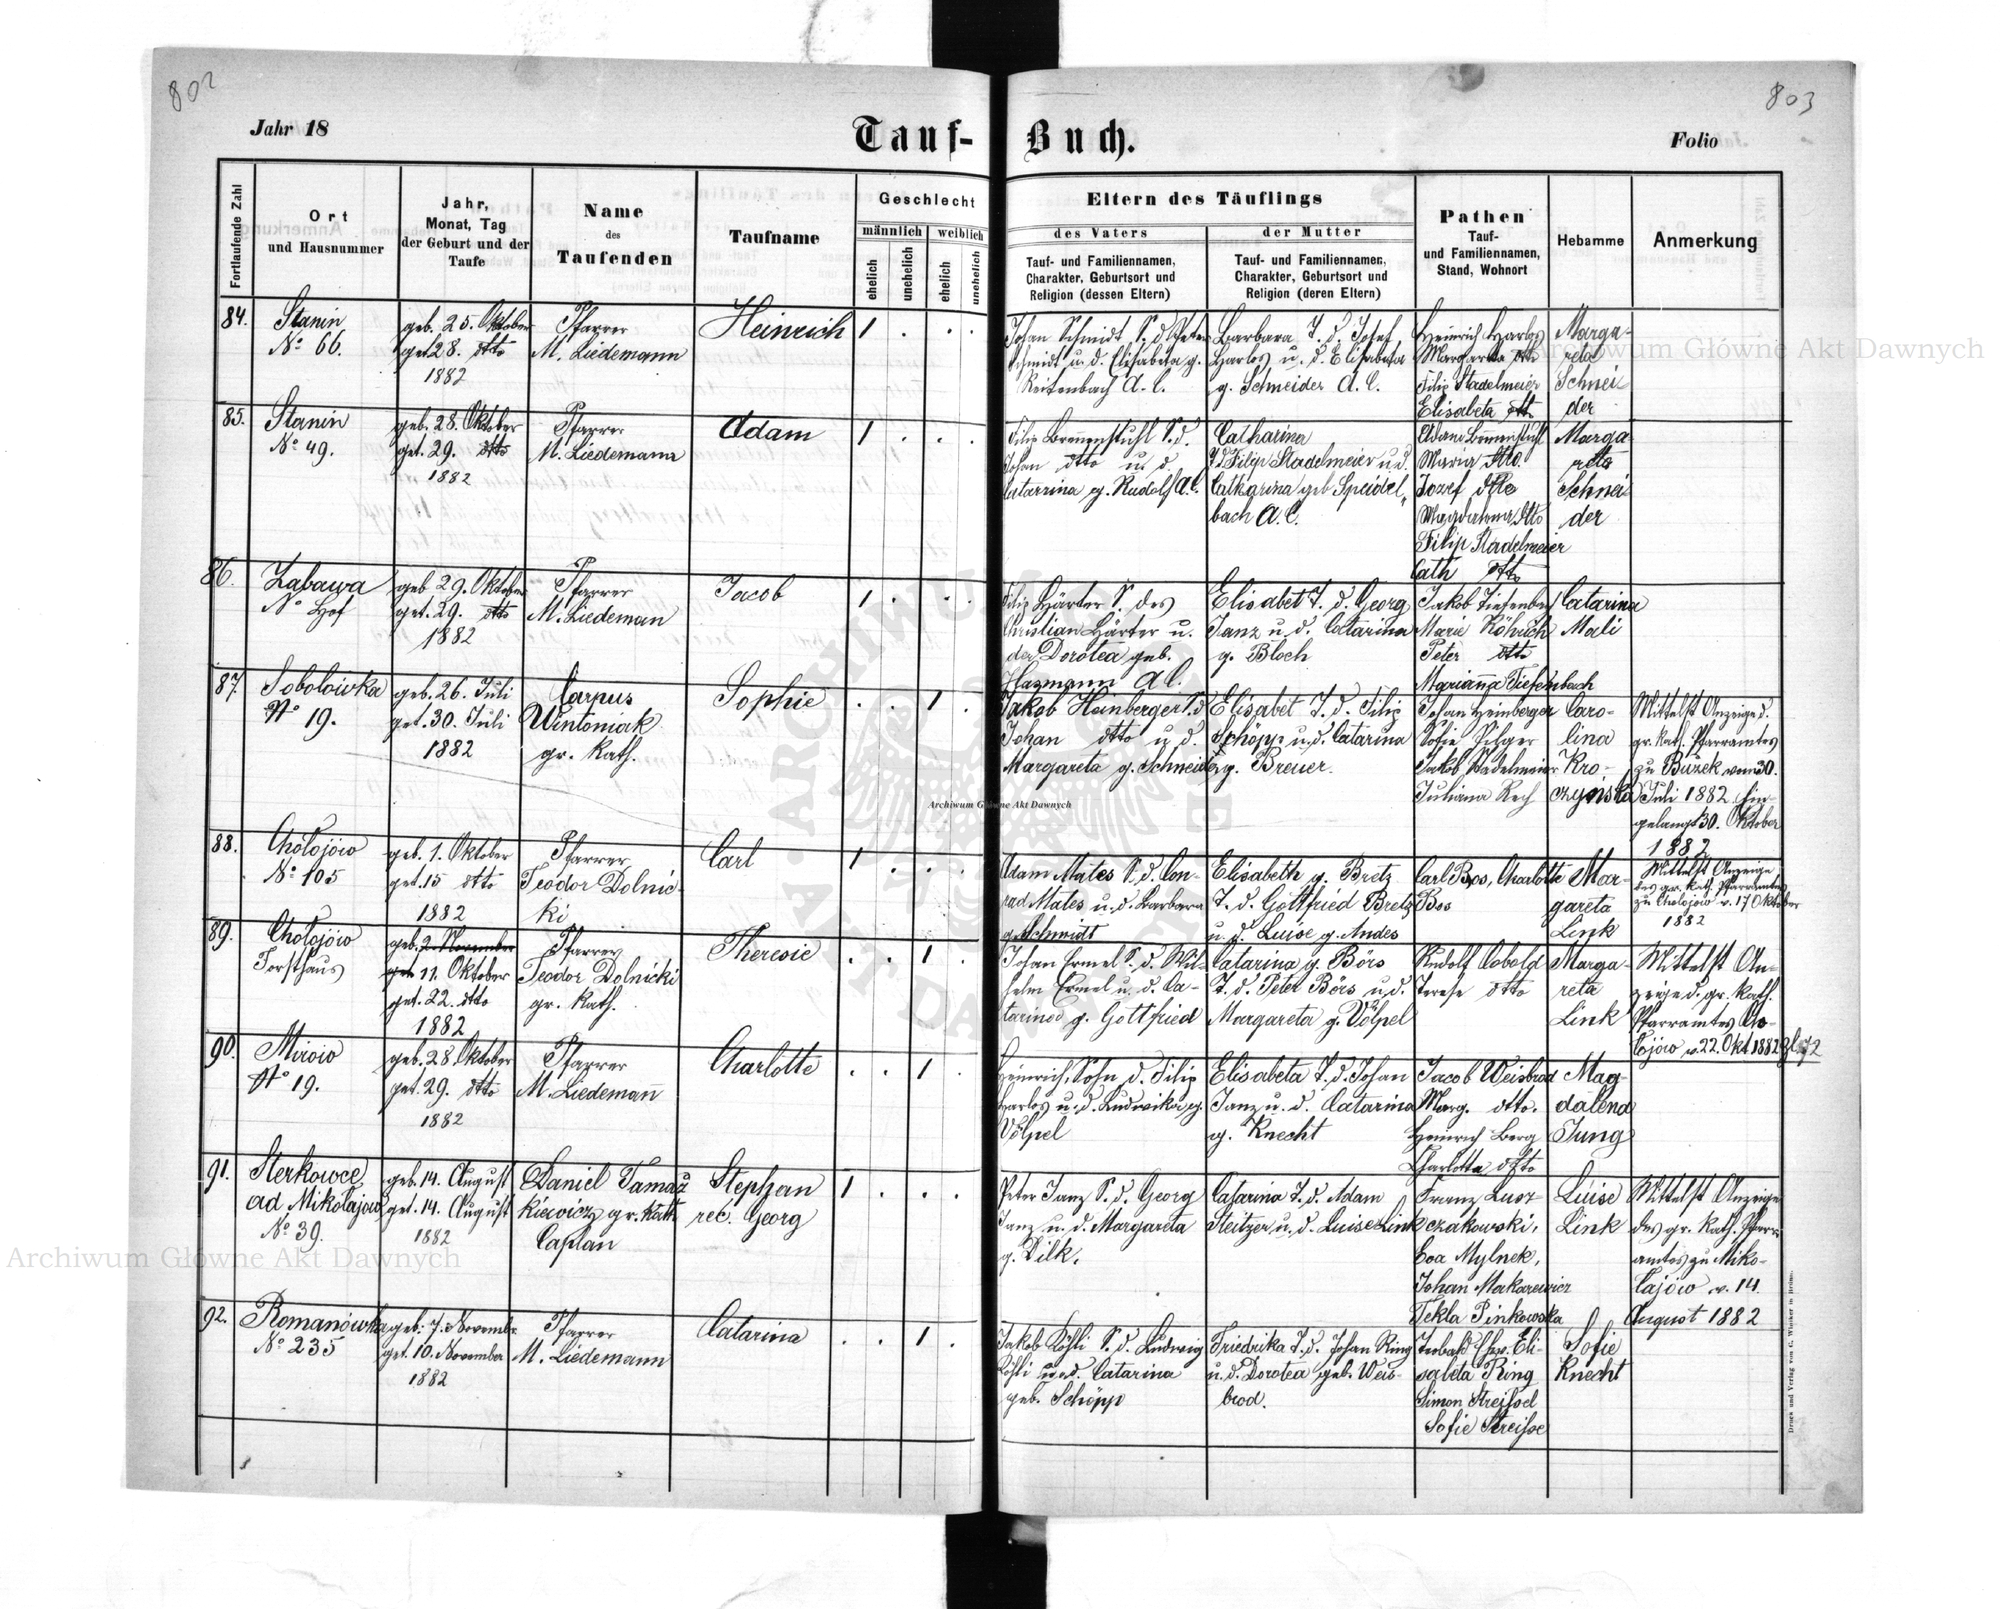 802
803
Jahr 18
Tauf-Buch.
Folio
Fortlaufende Zahl
Ort
und Hausnummer
Jahr,
Monat, Tag
der Geburt und der
Taufe
Name
des
Taufenden
Taufname
Geschlecht
männlich
weiblich
ehelich
unehelich
ehelich
unehelich
Eltern des Täuflings
des Vaters
Tauf- und Familiennamen,
Charakter, Geburtsort und
Religion (dessen Eltern)
der Mutter
Tauf- und Familiennamen,
Charakter, Geburtsort und
Religion (deren Eltern)
Pathen
Tauf-
und Familiennamen,
Stand, Wohnort
Hebamme
Anmerkung
84.
Stanin
No 66.
geb. 25. Oktober
get. 28. dtto
1882
Pfarrer
M. Liedemann
Heinrich
1 . . .
Johan Schmidt S. d. Peter
Schmidt u. d. Elisabeta g.
Reitenbach A. C.
Barbara T. d. Josef
Harlos u. d. Elisabeta
g. Schneider A. C.
Heinrich Harlos
Margareta dtto
Filip Stadelmeier
Elisabeta dtto
Marga-
reta
Schnei
der
85.
Stanin
No 49.
geb. 28. Oktober
get. 29. dtto
1882
Pfarrer
M. Liedemann
Adam
1 . . .
Filip Brennenstuhl S. d.
Johan dtto u. d.
Catarrina g. Rudolf A. C.
Catharina
T. d. Filip Stadelmeier u. d.
Catharina geb. Speidel-
bach A. C.
Adam Brennenstuhl
Maria dtto.
Jozef dtto
Magdalena dtto
Filip Stadelmeier
Cath dtto
Marga
reta
Schnei
der
86.
Zabawa
No Hof
geb 29. Oktober
get. 29. dtto
1882
Pfarrer
M. Liedeman
Jacob
1 . . .
Filip Härter S. des
Christian Härter u.
der Dorotea geb.
Hazmann A C.
Elisabet T. d. Georg
Janz u. d. Catarina
g. Bloch
Jakob Tiefenbach
Marie Köhrich
Peter dtto
Marianna Tiefenbach
Catarina
Mali
87.
Sobolówka
No 19.
geb. 26. Juli
get. 30. Juli
1882
Carpus
Wintoniak
gr. Kath.
Sophie
. . 1 .
Jakob Heinberger S. d
Johan dtto u d.
Margareta g. Schneider
Elisabet T. d. Filip
Schöpp u. d. Catarina
g. Breuer.
Johan Heinberger
Sofie Pilger
Jakob Stadelmeier
Juliana Rech
Caro-
lina
Kro-
czyńska
Mittelst Anzeige d.
gr. kath. Pfarramtes
zu Buzek vom 30.
Juli 1882 hin-
gelangt 30. Oktober
1882
88.
Chołojów
No 105
geb. 1. Oktober
get. 15 dtto
1882
Pfarrer
Teodor Dolnic-
ki
Carl
1 . . .
Adam Mates S. d. Con-
rad Mates u. d. Barbara
g. Schmidt
Elisabeth g. Bretz
T. d. Gottfried Bretz
u. d. Luise g. Andes
Carl Bos, Charlotte
Bos
Mar-
gareta
Link
Mittelst Anzeige
des gr. kath. Pfarramtes
zu Chołojów v. 17 Oktober
1882
89.
Chołojów
Forsthaus
geb. 2. November
get 11. Oktober
get. 22. dtto
1882
Pfarrer
Teodor Dolnicki
gr. Kath.
Theresie
. . 1 .
Johan Ermel S. d. Wil-
helm Ermel u. d. Ca-
tarina g. Gottfried
Catarina g. Börs
T. d. Peter Börs u. d.
Margareta g. Völpel
Rudolf Cobold
Terese dtto
Marga-
reta
Link
Mittelst An-
zeige d. gr. kath.
Pfarramtes Cho-
łojów v. 22. Okt 1882 Zl. 72
90.
Mirów
No 19.
geb. 28 Oktober
get. 29. dtto
1882
Pfarrer
M. Liedemann
Charlotte
. . 1 .
Heinrich, Sohn d. Filip
Harlos u. d. Ludwika g.
Völpel
Elisabeta T. d. Johan
Janz u. d. Catarina
g. Knecht
Jacob Weisbrod
Marg. dtto.
Heinrich Berg
Charlotta dtto
Mag
dalena
Jung
91.
Sterkowce
ad Mikołajów
No 39.
geb. 14. August
get. 14. August
1882
Daniel Tamaz
kiewicz gr. Kath
Caplan
Stephan
rec. Georg
1 . . .
Peter Janz S. d. Georg
Janz u. d. Margareta
g. Dilk.
Catarina T. d. Adam
Steitzer u. d. Luise Link
Franz Lusz
czakowski,
Eva Mylnek,
Johan Makarewicz
Tekla Pinkowska
Luise
Link
Mittelst Anzeige
des gr. kath. Pfarr-
amtes zu Miko-
łajów v. 14.
August 1882
92.
Romanówka
No 235
geb. 7. November
get. 10. November
1882
Pfarrer
M. Liedemann
Catarina
. . 1 .
Jakob Köhli S. d. Ludwig
Köhli u. d. Catarina
geb. Schöpp
Friedrika T. d. Johan Ring
u. d. Dorotea geb. Weis-
brod.
Eli-
sabeta Ring
Simon Streissel
Sofie Streisse
Sofie
Knecht
Archiwum Główne Akt Dawnych
Archiwum Główne Akt Dawnych
Archiwum Główne Akt Dawnych